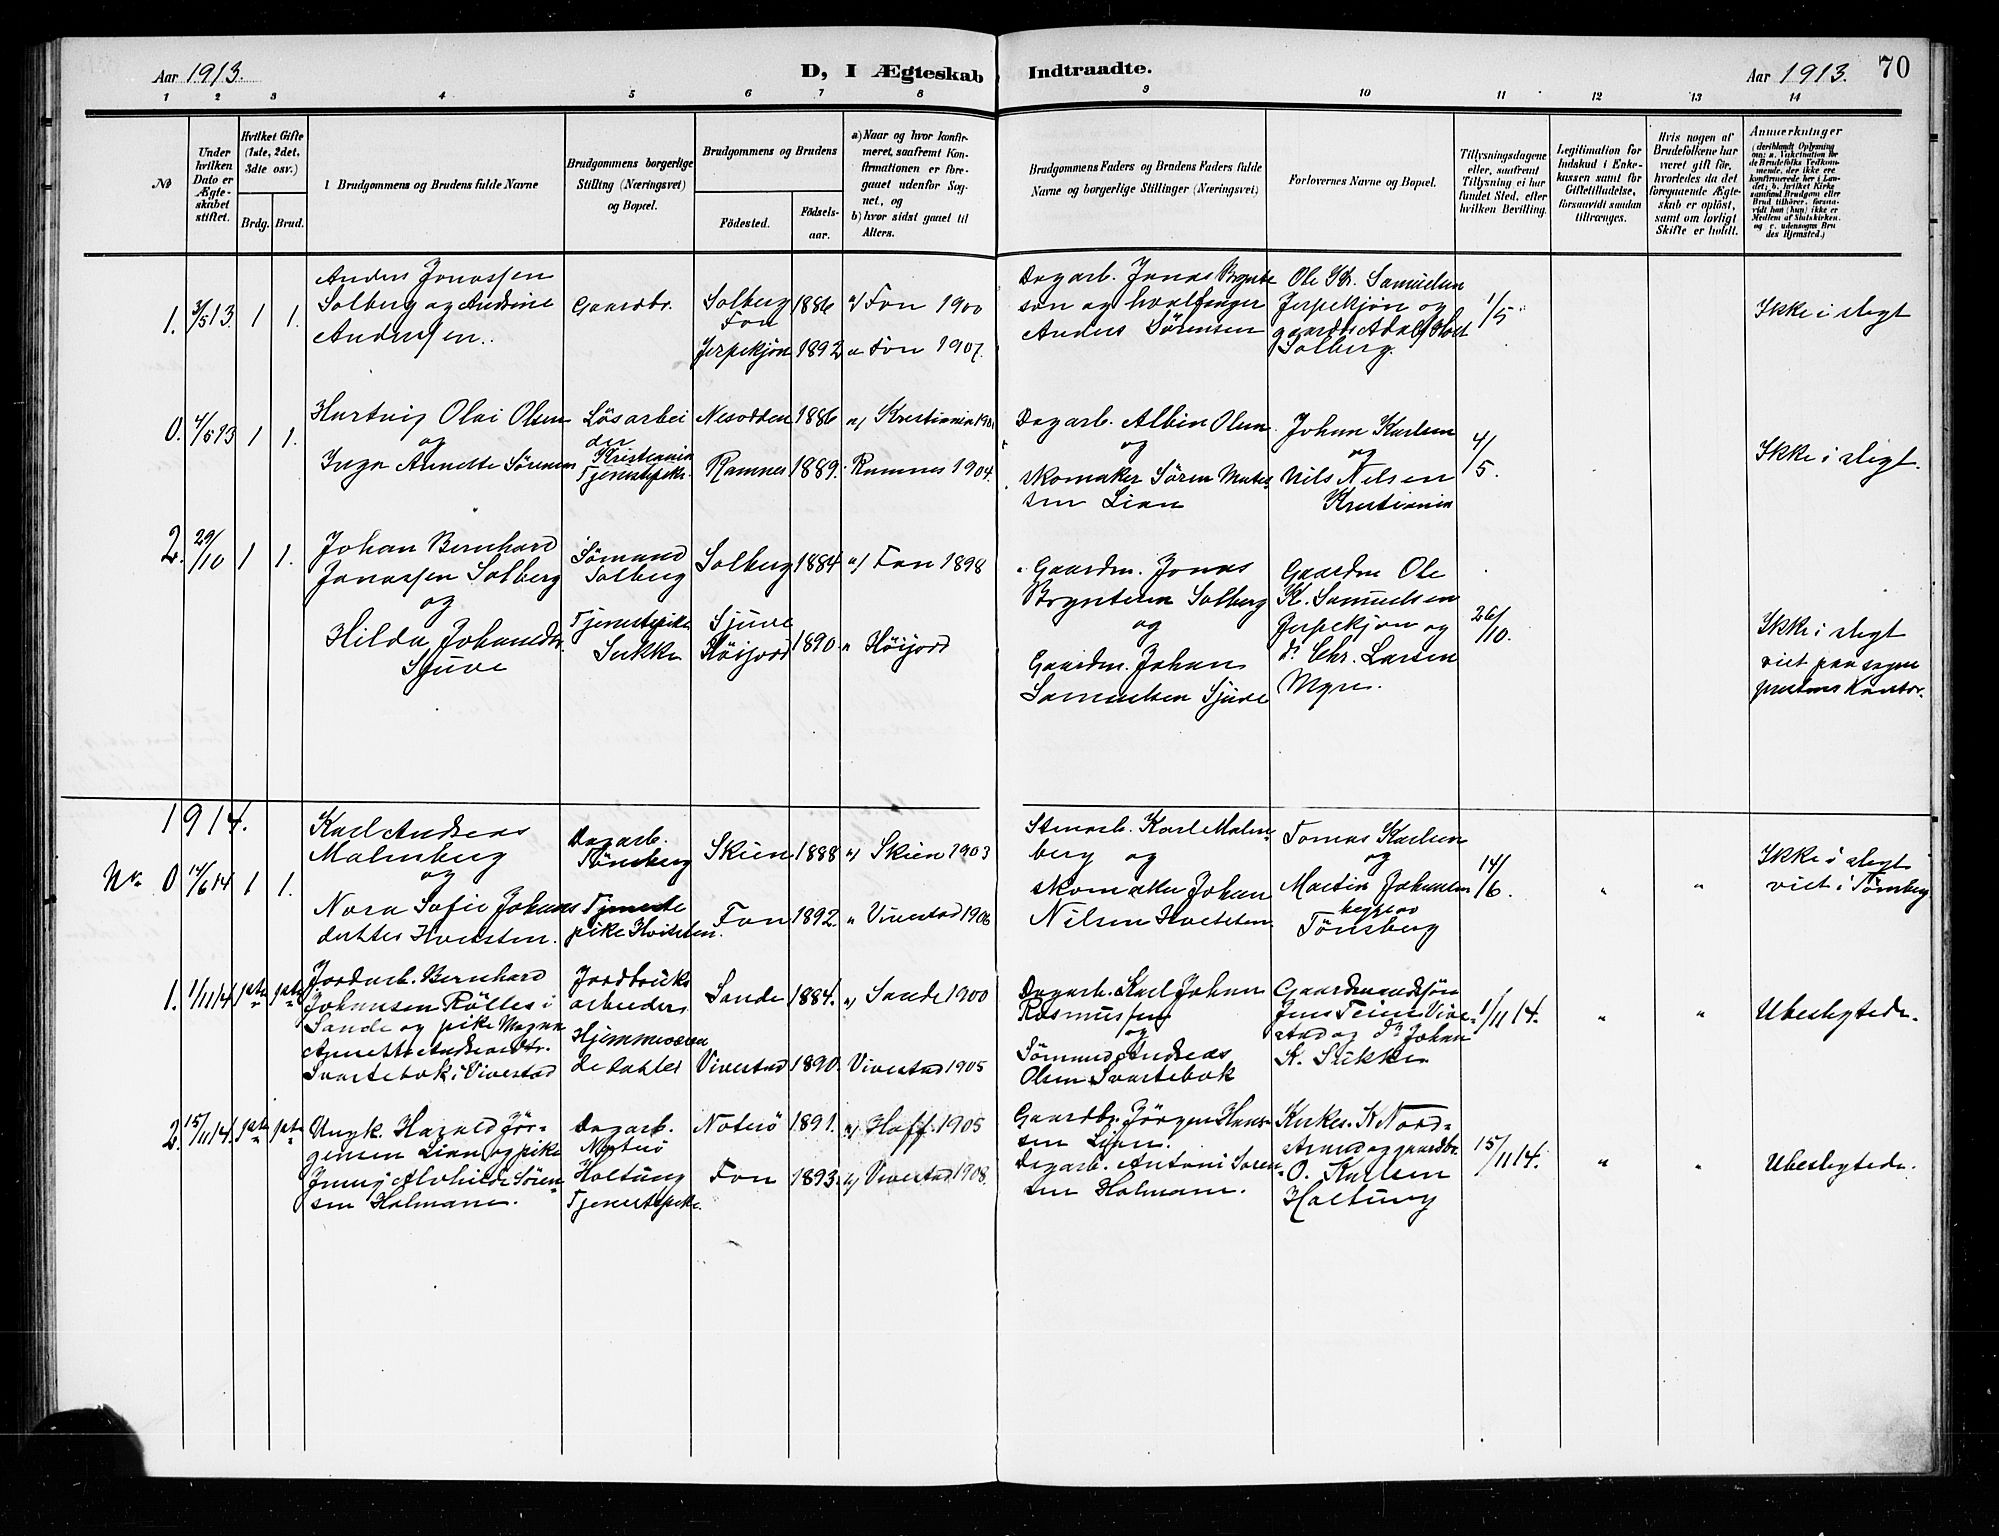 Aar 1913.
D, I Ægteskab Indtraadte.
Aar 1913. 70
1 2 3 4 5 6 7 8 9 10 11 12 13 14
No
Under
hvilken
Dato er
Ægte-
skabet
stiftet.
Hvilket Gifte
(1ste, 2det,
3dte osv.)
Brdg. Brud.
1 Brudgommens og Brudens fulde Navne
Brudgommens borgerlige
Stilling (Næringsvei)
og Bopæl.
Brudgommens og Brudens
Födested.
Födsels-
aar.
a) Naar og hvor konfir-
meret, saafremt Kon-
firmationen er fore-
gaaet udenfor Sog-
net, og
b) hvor sidst gaaet til
Alters.
Brudgommens Faders og Brudens Faders fulde
Navne og borgerlige Stillinger (Næringsvei)
Forlovernes Navne og Bopæl.
Tillysningsdagene
eller, saafremt
Tillysning ei har
fundet Sted, efter
hvilken Bevilling.
Legitimation for
Indskud i Enke-
kassen samt for
Giftetilladelse,
forsaavidt saadan
tiltrænges.
Hvis nogen af
Brudefolkene har
været gift för,
hvorledes da det
foregaaende Ægte-
skab er oplöst,
samt om lovligt
Skifte er holdt.
Anmærkninger
(deriblandt Oplysning
om: a. Vakcination for
de Brudefolks Vedkom-
mende, der ikke ere
konfirmerede her i Lan-
det; b. hvilket Kirke
samfund Brudgom eller
Brud tilhörer, forsaa-
vidt han (hun) ikke er
Medlem af Statskirken,
og c. udensogns Bru
des Hjemsted.)
1. 3/5 13. 1 1.
Anders Jonassen
Solberg og Andrine
Anderssen.
Gaardbr.
Solberg 1886 a/ Fon 1900
Fon
Jerpekjøn 1892 a Fon 1907.
Dagarb. Jonas Brynte
son og hvalfanger
Anders Sørensen
Ole Kr. Samuelsen
Jerpekjøn og
gaardbr Adolf
Solberg.
1/5
Ikke i slegt
0. 4/5 13 1 1.
Hartvig Olai Olsen
og
Inga Annette Sörensen
Lösarbei
der
Kristiania
Tjenestepike.
Nesodden 1886 a/ Kristiania
Ramnes 1889. Ramnes 1904.
Dagarb. Albin Olsen
og
skomaker Sören Mates
sen Lian
Johan Karlsen
og
Nils Nelsen
Kristiania
4/5.
Ikke i slegt.
2. 29/10 1 1.
Johan Bernhard
Jonassen Solberg
og
Hilda Johansdr.
Sjuve
Sömand
Solberg
Tjenestepike
Sukke
Solberg 1884 a/ Fon 1898
Sjuve
Höijord 1890 " Höijord
Gaardm. Jonas
Bryntesen Solberg
og
Gaardm. Johan
Samuelsen Sjuve
Gaardm Ole
K. Samuelsen
Jerpekjøn og
do Chr. Larsen
Myre.
26/10.
Ikke i slegt
viet paa sogne
prestens Kontor.
1914.
Nr. 0 14/6 14 1 1.
Karl Andreas
Malmberg
og
Nora Sofie Johans
dahter Hvetsten.
Dagarb.
Tönsberg
Tjeneste
pike Hvitsten.
Skien 1888 a/ Skien 1903
Fon 1892. " Vivestad 1906
Stenarb. Karl Malm-
berg og
skomaker Johan
Nilsen Hvetsten
Tomas Karlsen
og
Martin Johansen
begge av
Tönsberg
14/6. " "
Ikke i slegt
viet i Tönsberg
1. 1/11 14
Jordarb. Bernhard
Johansen Rölles i
Sande og pike Magna
Annette Andreasdtr.
Svartebok i Vivestad
Jordbruks
arbeider
Hjemmeværen
de dahter
Sande 1884. a/ Sande 1900
Vivestad 1890. Vivestad 1905
Dagarb. Karl Johan
Rasmussen
og
Sömand Andreas
Olsen Svartebok
Gaardmandssön
Jens Teien Vive
stad og do Johan
K. Sukke
1/11 14. " "
Ubeslegtede.
2. 15/11 14.
Ungk. Harald Jör-
gensen Lian og pike
Jenny Alvhilde Sören-
sen Holmane.
Dagarb.
Nøterö
Holtung
Tjenestepike.
Noterö 1891. a/ Hoff 1905
Fon 1893. a/ Vivestad 1908.
Gaardbr. Jörgen Hans-
sen Lian.
Dagarb. Antoni Sören-
sen Holmane.
Kirkes. K Nord-
strand og gaardbr.
O. Karlsen
Holtung
15/11 14. " "
Ubeslegtede.